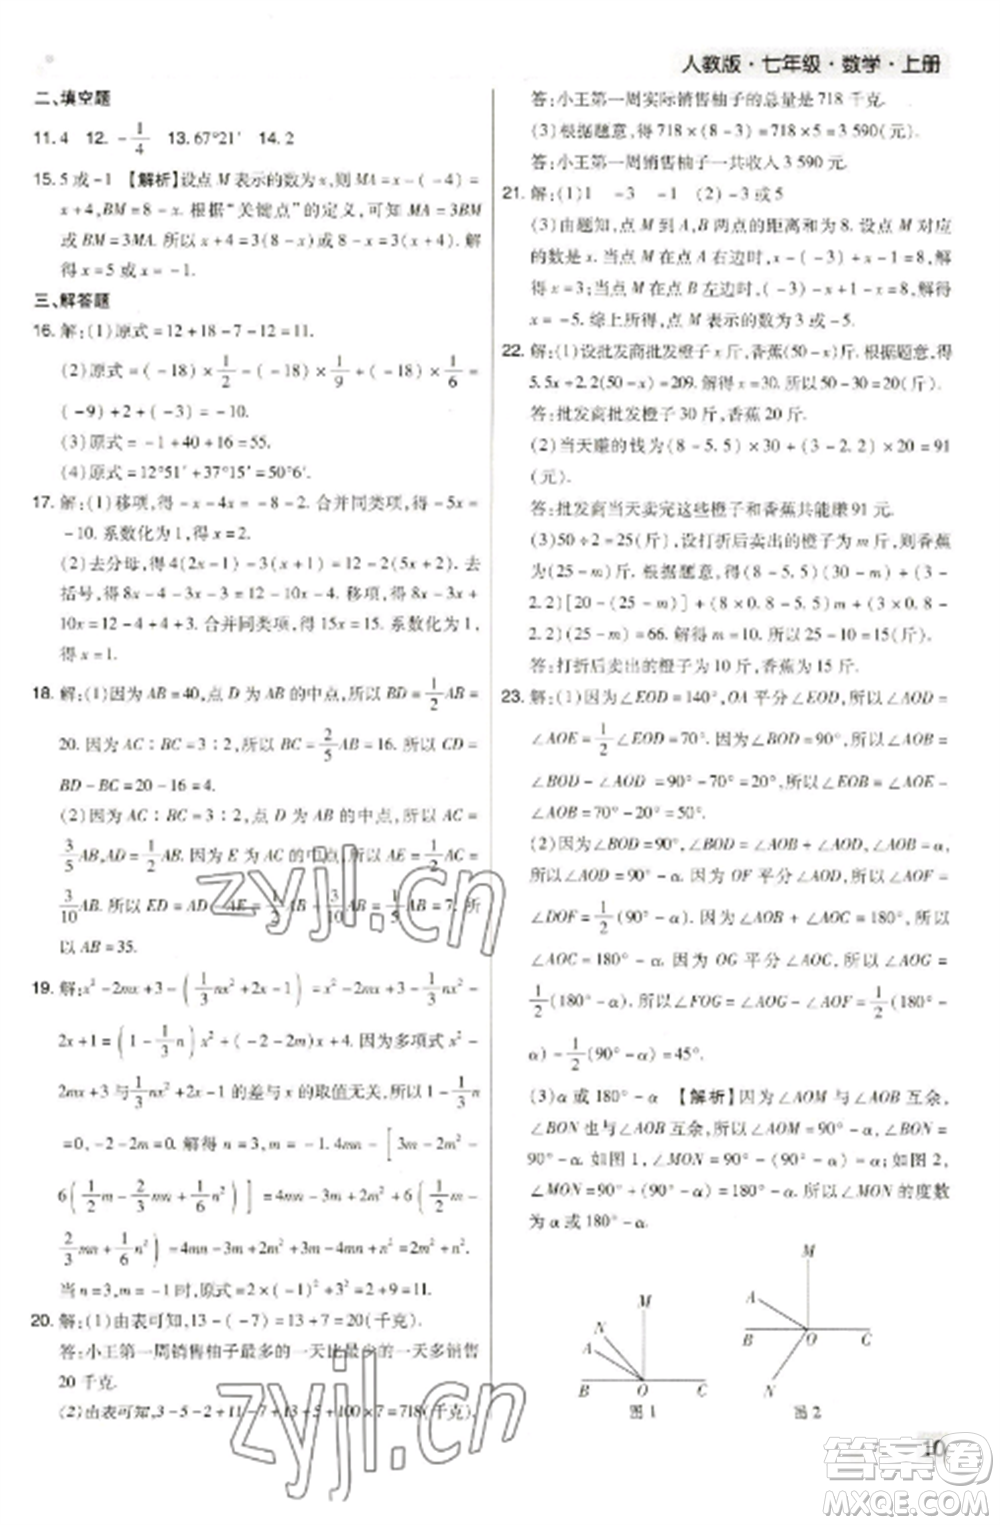 人教版·七年级·数学·上册
二、填空题
11. 4 12. -1/4 13. 67°21′ 14. 2
15. 5 或 -1 【解析】设点 M 表示的数为 x,则 MA = x - (-4) =
x + 4, BM = 8 - x. 根据“关键点”的定义,可知 MA = 3BM
或 BM = 3MA. 所以 x + 4 = 3(8 - x) 或 8 - x = 3(x + 4). 解
得 x = 5 或 x = -1.
三、解答题
16. 解:(1)原式 = 12 + 18 - 7 - 12 = 11.
(2)原式 = (-18) × 1/2 - (-18) × 1/9 + (-18) × 1/6 =
(-9) + 2 + (-3) = -10.
(3)原式 = -1 + 40 + 16 = 55.
(4)原式 = 12°51′ + 37°15′ = 50°6′.
17. 解:(1)移项,得 -x - 4x = -8 - 2. 合并同类项,得 -5x =
-10. 系数化为 1,得 x = 2.
(2)去分母,得 4(2x - 1) - 12 = 3(2 - 10x). 去
括号,得 8x - 4 - 12 = 6 - 30x. 移项,得 8x + 30x = 6 +
得 x = 1.
18. 解:(1)因为 AB = 40,点 D 为 AB 的中点,所以 BD = 1/2 AB =
20. 因为 AC : BC = 3 : 2,所以 BC = 2/5 AB = 16. 所以 CD =
BD - BC = 20 - 16 = 4.
(2)因为 AC : BC = 3 : 2,点 D 为 AB 的中点,所以 AC =
3/5 AB, AD = 1/2 AB. 因为 E 为 AC 的中点,所以 AE = 1/2 AC =
3/10 AB. 所以 ED = AD - AE = 1/2 AB - 3/10 AB = 1/5 AB = 7. 所
以 AB = 35.
19. 解: x² - 2mx + 3 - (1/3 nx² + 2x - 1) = x² - 2mx + 3 - 1/3 nx² -
2x + 1 = (1 - 1/3 n)x² + (-2 - 2m)x + 4. 因为多项式 x² -
2mx + 3 与 1/3 nx² + 2x - 1 的差与 x 的取值无关,所以 1 - 1/3 n
= 0, -2 - 2m = 0. 解得 n = 3, m = -1.
当 n = 3, m = -1 时,原式 = 2 × (-1)² + 3² = 2 + 9 = 11.
20. 解:(1)由表可知,13 - (-7) = 13 + 7 = 20(千克).
答:小王第一周销售柚子最多的一天比最少的一天多销售
20 千克.
(2)由表可知,3 - 5 - 2 + 11 - 7 + 13 + 5 + 100 × 7 = 718(千克).
答:小王第一周实际销售柚子的总量是 718 千克.
(3)根据题意,得 718 × (8 - 3) = 718 × 5 = 3 590(元).
答:小王第一周销售柚子一共收入 3 590 元.
21. 解:(1)1 -3 -1 (2) -3 或 5
(3)由题知,点 M 到 A,B 两点的距离和为 8. 设点 M 对应
的数是 x. 当点 M 在点 A 右边时,x - (-3) + x - 1 = 8,解
得 x = 3;当点 M 在点 B 左边时, -3 - x + 1 - x = 8,解得
x = -5. 综上所述,点 M 表示的数为 3 或 -5.
22. 解:(1)设批发商批发橙子 x 斤,香蕉(50 - x)斤. 根据题意,得
5.5x + 2.2(50 - x) = 209. 解得 x = 30. 所以 50 - 30 = 20(斤).
答:批发商批发橙子 30 斤,香蕉 20 斤.
(2)当天赚的钱为(8 - 5.5) × 30 + (3 - 2.2) × 20 = 91
(元).
答:批发商当天卖完这些橙子和香蕉共能赚 91 元.
(3)50 ÷ 2 = 25(斤). 设打折后卖出的橙子有 m 斤,则香蕉
2.2)(25 - m) = 66. 解得 m = 10. 所以 25 - 10 = 15(斤).
答:打折后卖出的橙子为 10 斤,香蕉为 15 斤.
23. 解:(1)因为∠EOD = 140°, OA 平分∠EOD,所以∠AOD =
∠AOE = 1/2∠EOD = 70°. 因为∠BOD = 90°,所以∠AOB =
∠BOD - ∠AOD = 90° - 70° = 20°. 所以∠EOB = ∠AOE -
∠AOB = 70° - 20° = 50°.
(2)因为∠BOD = 90°,∠AOB = α,所以∠AOD = 90° - α.
因为 OF 平分∠AOD,所以∠AOF =
∠DOF = 1/2(90° - α). 因为∠AOB + ∠AOC = 180°,所以
∠AOC = 180° - α. 因为 OG 平分∠AOC,所以∠AOG =
1/2(180° - α). 所以∠FOG = ∠AOG - ∠AOF = 1/2(180° -
α) - 1/2(90° - α) = 45°.
(3)α 或 180° - α 【解析】因为∠AOM 与∠AOB 互余,
∠BON 也与∠AOB 互余,所以∠AOM = 90° - α,∠BON =
90° - α. 如图 1,∠MON = 90° - (90° - α) = α;如图 2,
∠MON = 90° + (90° - α) = 180° - α. 所以∠MON 的度数
为 α 或 180° - α.
M
N
A
B O C
图 1
M
A
B O C
N
图 2
10
zyjl.cn
zyjl.cn
答案圈
MXQE.COM